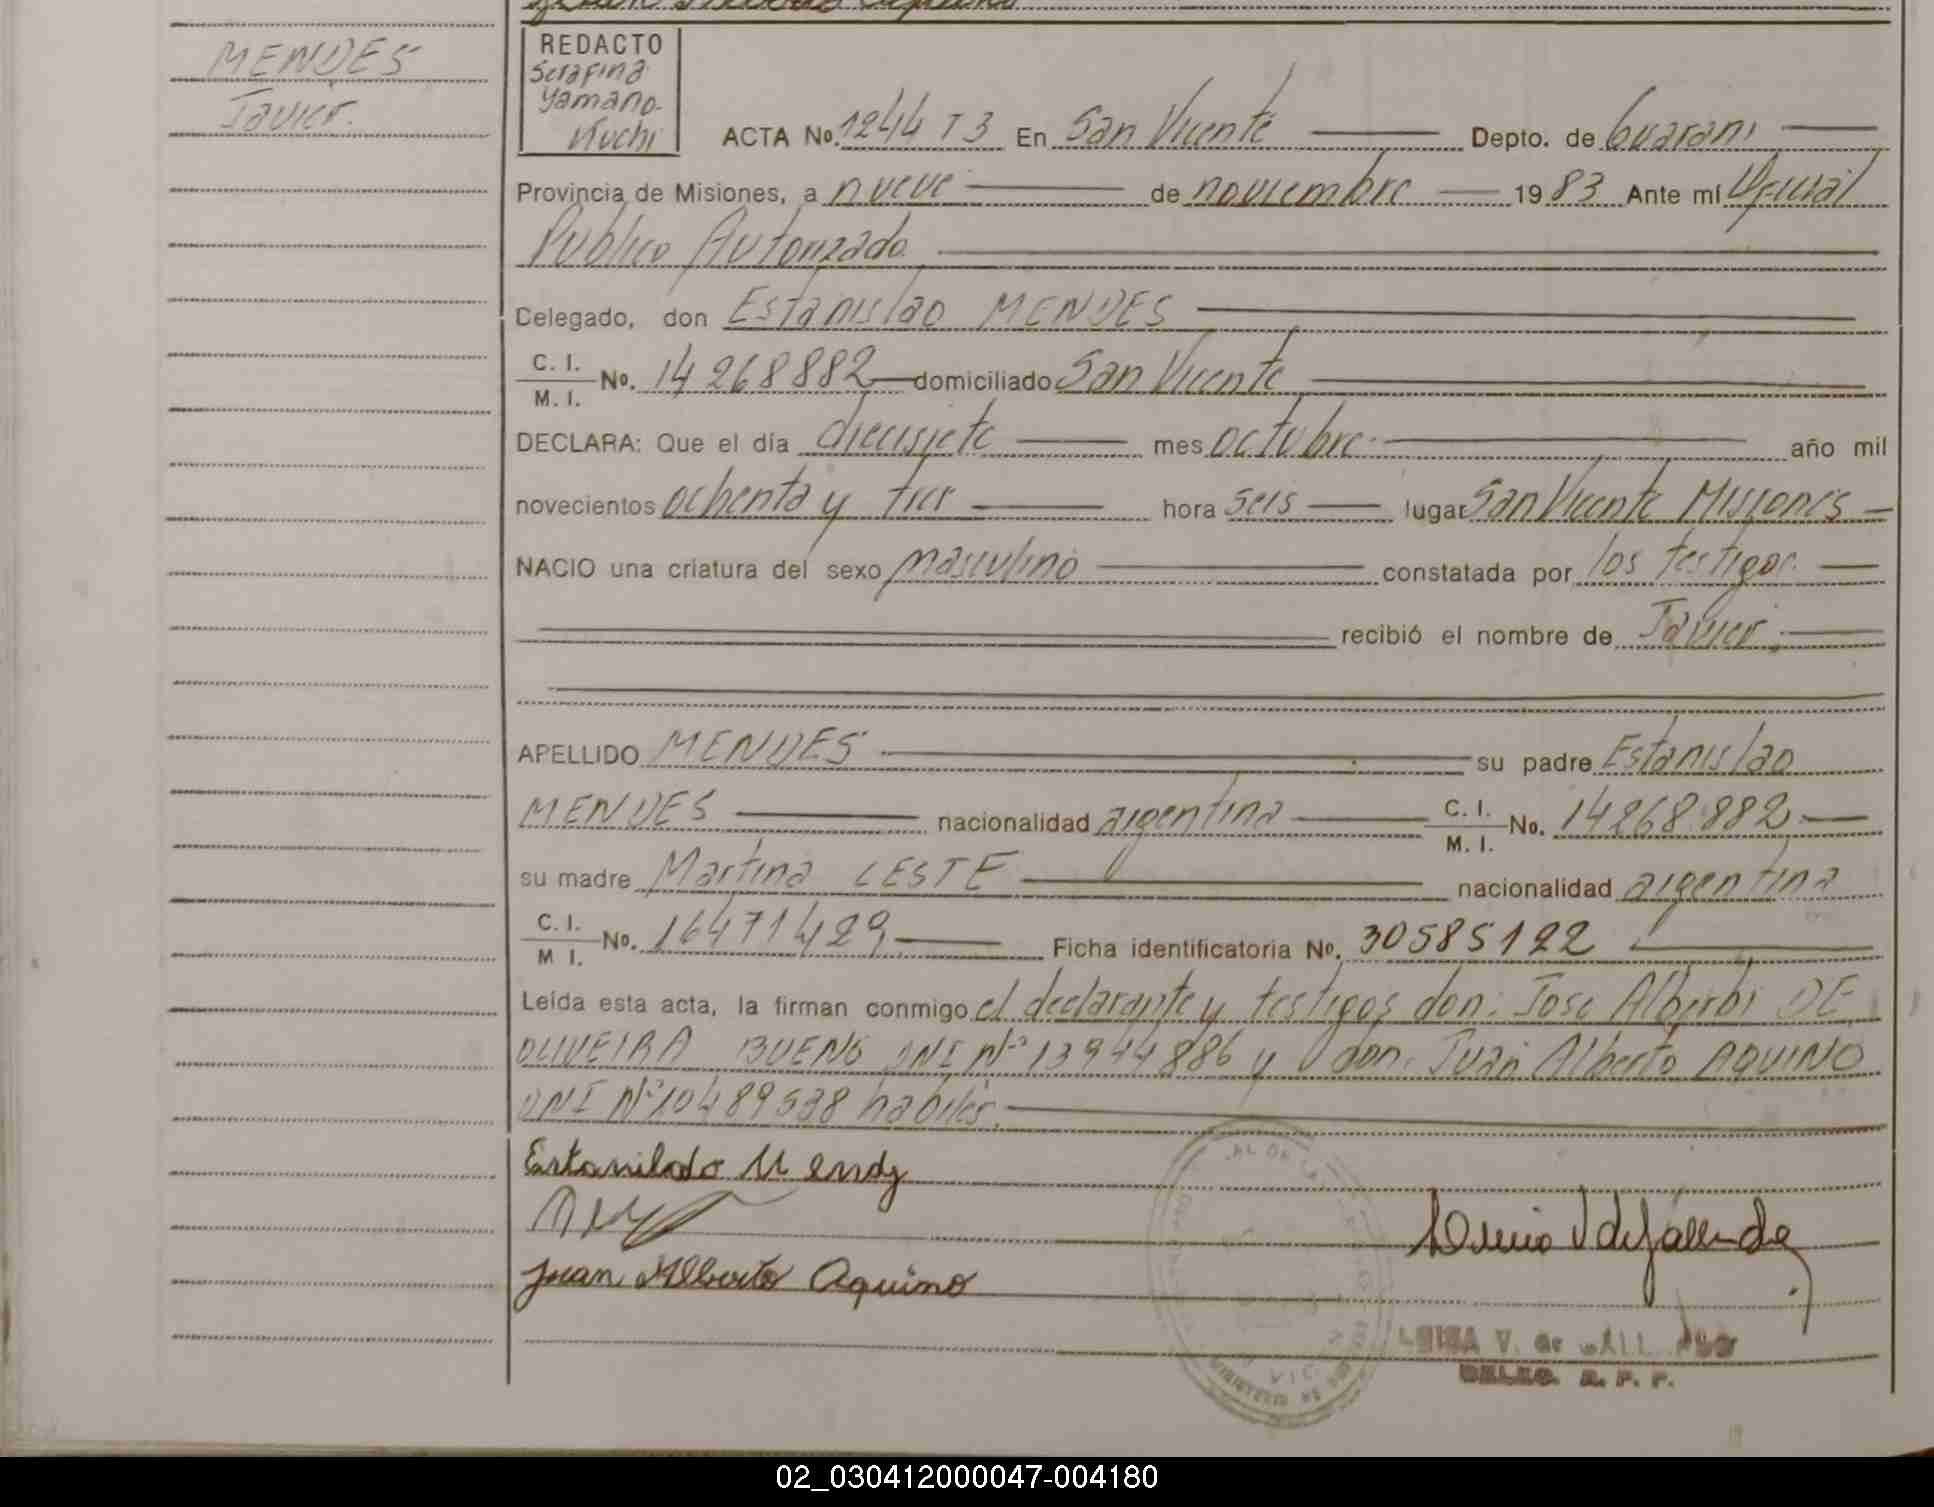 MENDES
Javier.
REDACTO
Serafina
Yamano-
Kuchi
ACTA No. 1244 T3 En San Vicente Depto. de Guarani
Provincia de Misiones, a nueve de noviembre 1983 Ante mí Oficial
Publico Autorizado
Celegado, don Estanislao MENDES
C. I. / M. I. No. 14268882 domiciliado San Vicente
DECLARA: Que el día diecisiete mes octubre año mil
novecientos ochenta y tres hora seis lugar San Vicente Misiones
NACIO una criatura del sexo masculino constatada por los testigos.
recibió el nombre de Javier
APELLIDO MENDES su padre Estanislao
MENDES nacionalidad argentina C. I. / M. I. No. 14268882
su madre Martina LESTE nacionalidad argentina
C. I. / M I. No. 16471429 Ficha identificatoria No. 30585122
Leída esta acta, la firman conmigo el declarante y testigos don: Jose Alberbi DE
OLIVEIRA BUENO DNI Nº 13944886 y don: Juan Alberto AQUINO
DNI Nº 10489538 habiles.
Estanilado Mendes
Juan Alberto Aquino
LUISA V. de
DELEG. R. P. P.
02_030412000047-004180